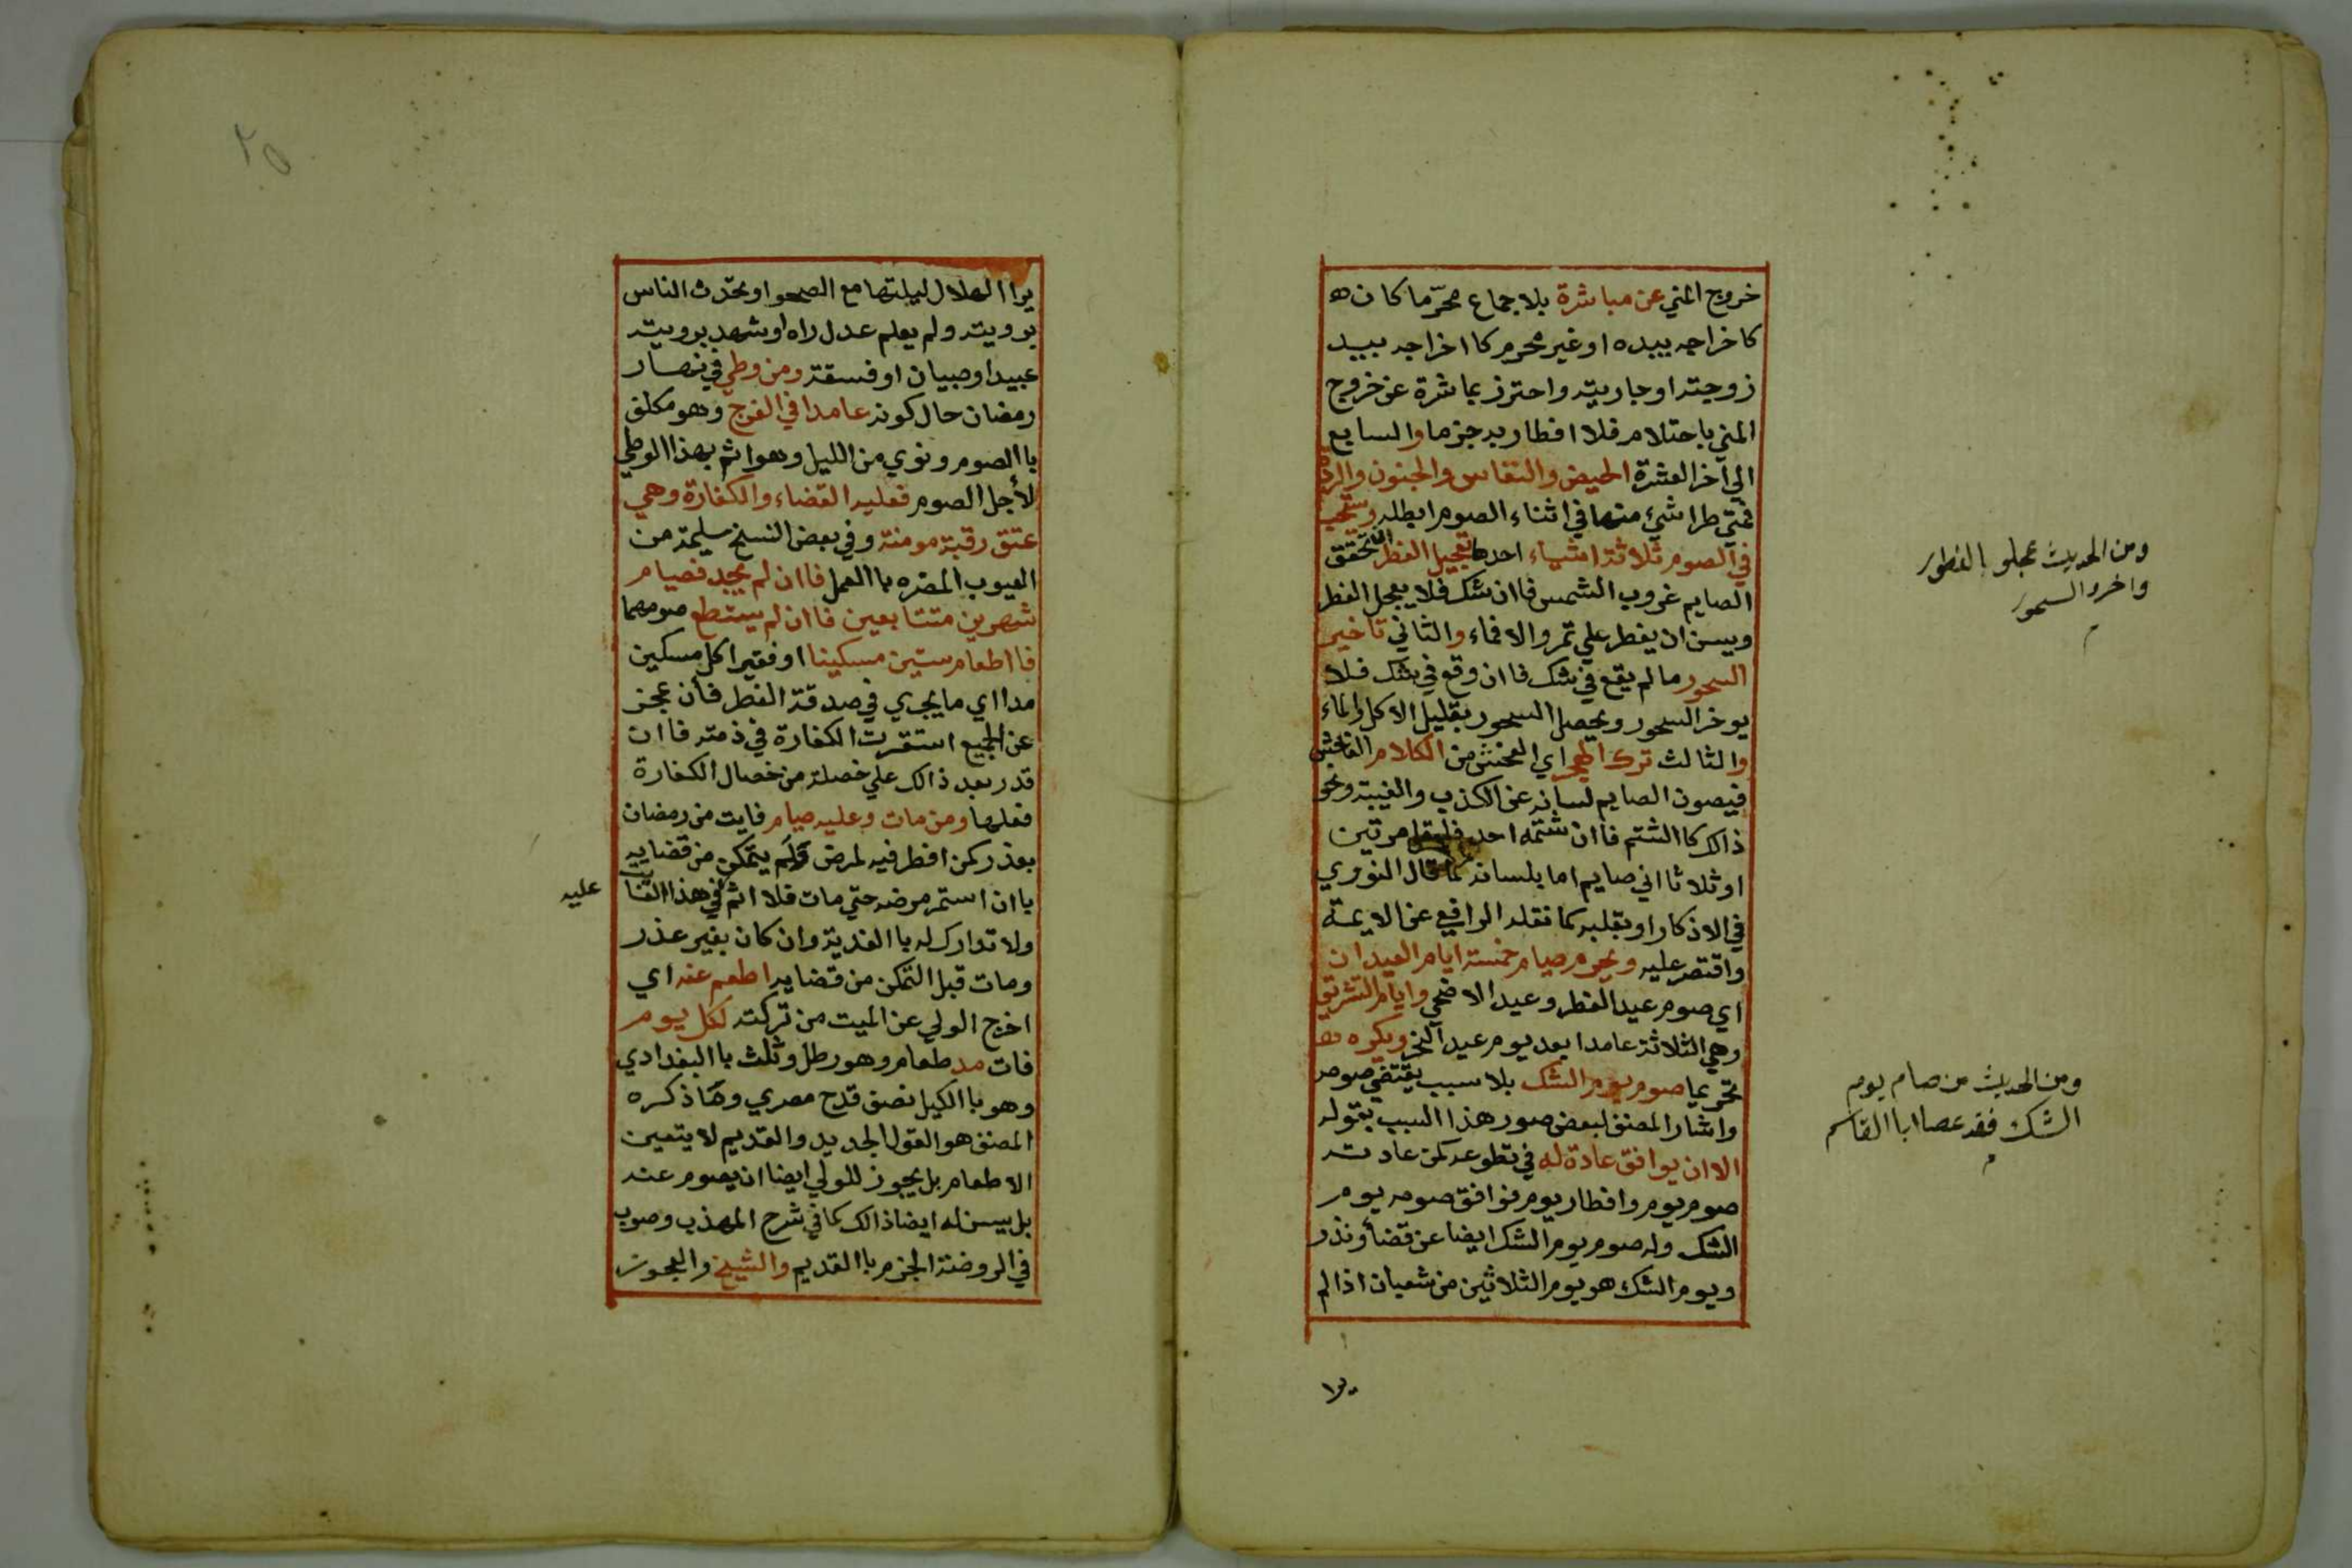 خروج المني عن مباشرة بلا جماع محرّما كان
كاخراجه بيده او غير محرم كا اخراجه بيد
زوجته او جاريته واحترز بمباشرة عن خروج
المني باحتلام فلا افطار به جزما والسابع
الي اخر العشرة الحيض والنفاس والجنون والردة
فمتي طرا شيئ منها في اثناء الصوم ابطله ويستحب
في الصوم ثلاثة اشياء احدها تعجيل الفطر ان تحقق
الصايم غروب الشمس فاان شك فلا يعجل الفطر
ويسن ان يفطر علي تمر والا فماء والثاني تاخير
السحور ما لم يقع في شك فاان وقع في شك فلا
يوخر السحور ويحصل السحور بقليل الاكل والماء
والثالث ترك الهجر اي الفحش من الكلام الفاحش
فيصون الصايم لسانه عن الكذب والغيبة ونحو
ذالك كا الشتم فاان شتمه احد فليقل مرتين
او ثلاثا اني صايم اما بلسانه كما قال النووي
في الاذكار او بقلبه كما نقله الرافعي عن الايمة
واقتصر عليه ويحرم صيام خمسة ايام العيدان
اي صوم عيد الفطر وعيد الاضحي وايام التشريق
وهي الثلاثة عامدا بعد يوم عيد النحر ويكره
تحريما صوم يوم الشك بلا سبب يقتضي صومه
واشار المصنف لبعض صور هذا السبب بقوله
الا ان يوافق عادة له في تطوعه كمن عادته
صوم يوم وافطار يوم فوافق صومه يوم
الشك وله صوم يوم الشك ايضا عن قضاء ونذر
ويوم الشك هو يوم الثلاثين من شعبان اذا لم
يرا
ومن الحديث عجلو بالفطور
واخرو السحور
م
ومن الحديث من صام يوم
الشك فقد عصا ابا القاسم
م
٢٥
يرا الهلال ليلتها مع الصحو او تحدث الناس
برويته ولم يعلم عدل راه او شهد برويته
عبيد او صبيان او فسقة ومن وطي في نهار
رمضان حال كونه عامدا في الفرج وهو مكلف
باالصوم ونوي من الليل وهو اثم بهذا الوطي
لأجل الصوم فعليه القضاء والكفارة وهي
عتق رقبة مومنة وفي بعض النسخ سليمة من
العيوب المضره باالعمل فاان لم يجد فصيام
شهرين متتابعين فاان لم يستطع صومهما
فااطعام ستين مسكينا او فقيرا كل مسكين
مدا اي ما يجزي في صدقة الفطر فأن عجز
عن الجميع استقرت الكفارة في ذمته فاان
قدر بعد ذالك علي خصلة من خصال الكفارة
فعلها ومن مات وعليه صيام فايت من رمضان
بعذر كمن افطر فيه لمرض ولم يتمكن من قضايه
باان استمر مرضه حتي مات فلا اثم في هذا الفايت
عليه
ولا تدارك له باالفدية وان كان بغير عذر
ومات قبل التمكن من قضايه اطعم عنه اي
اخرج الولي عن الميت من تركته لكل يوم
فات مد طعام وهو رطل وثلث باالبغدادي
وهو باالكيل نصف قدح مصري وما ذكره
المصنف هو القول الجديد والقديم لا يتعين
الاطعام بل يجوز للولي ايضا ان يصوم عنه
بل يسن له ايضا ذالك كما في شرح المهذب وصوب
في الروضة الجزم باالقديم والشيخ والعجوز